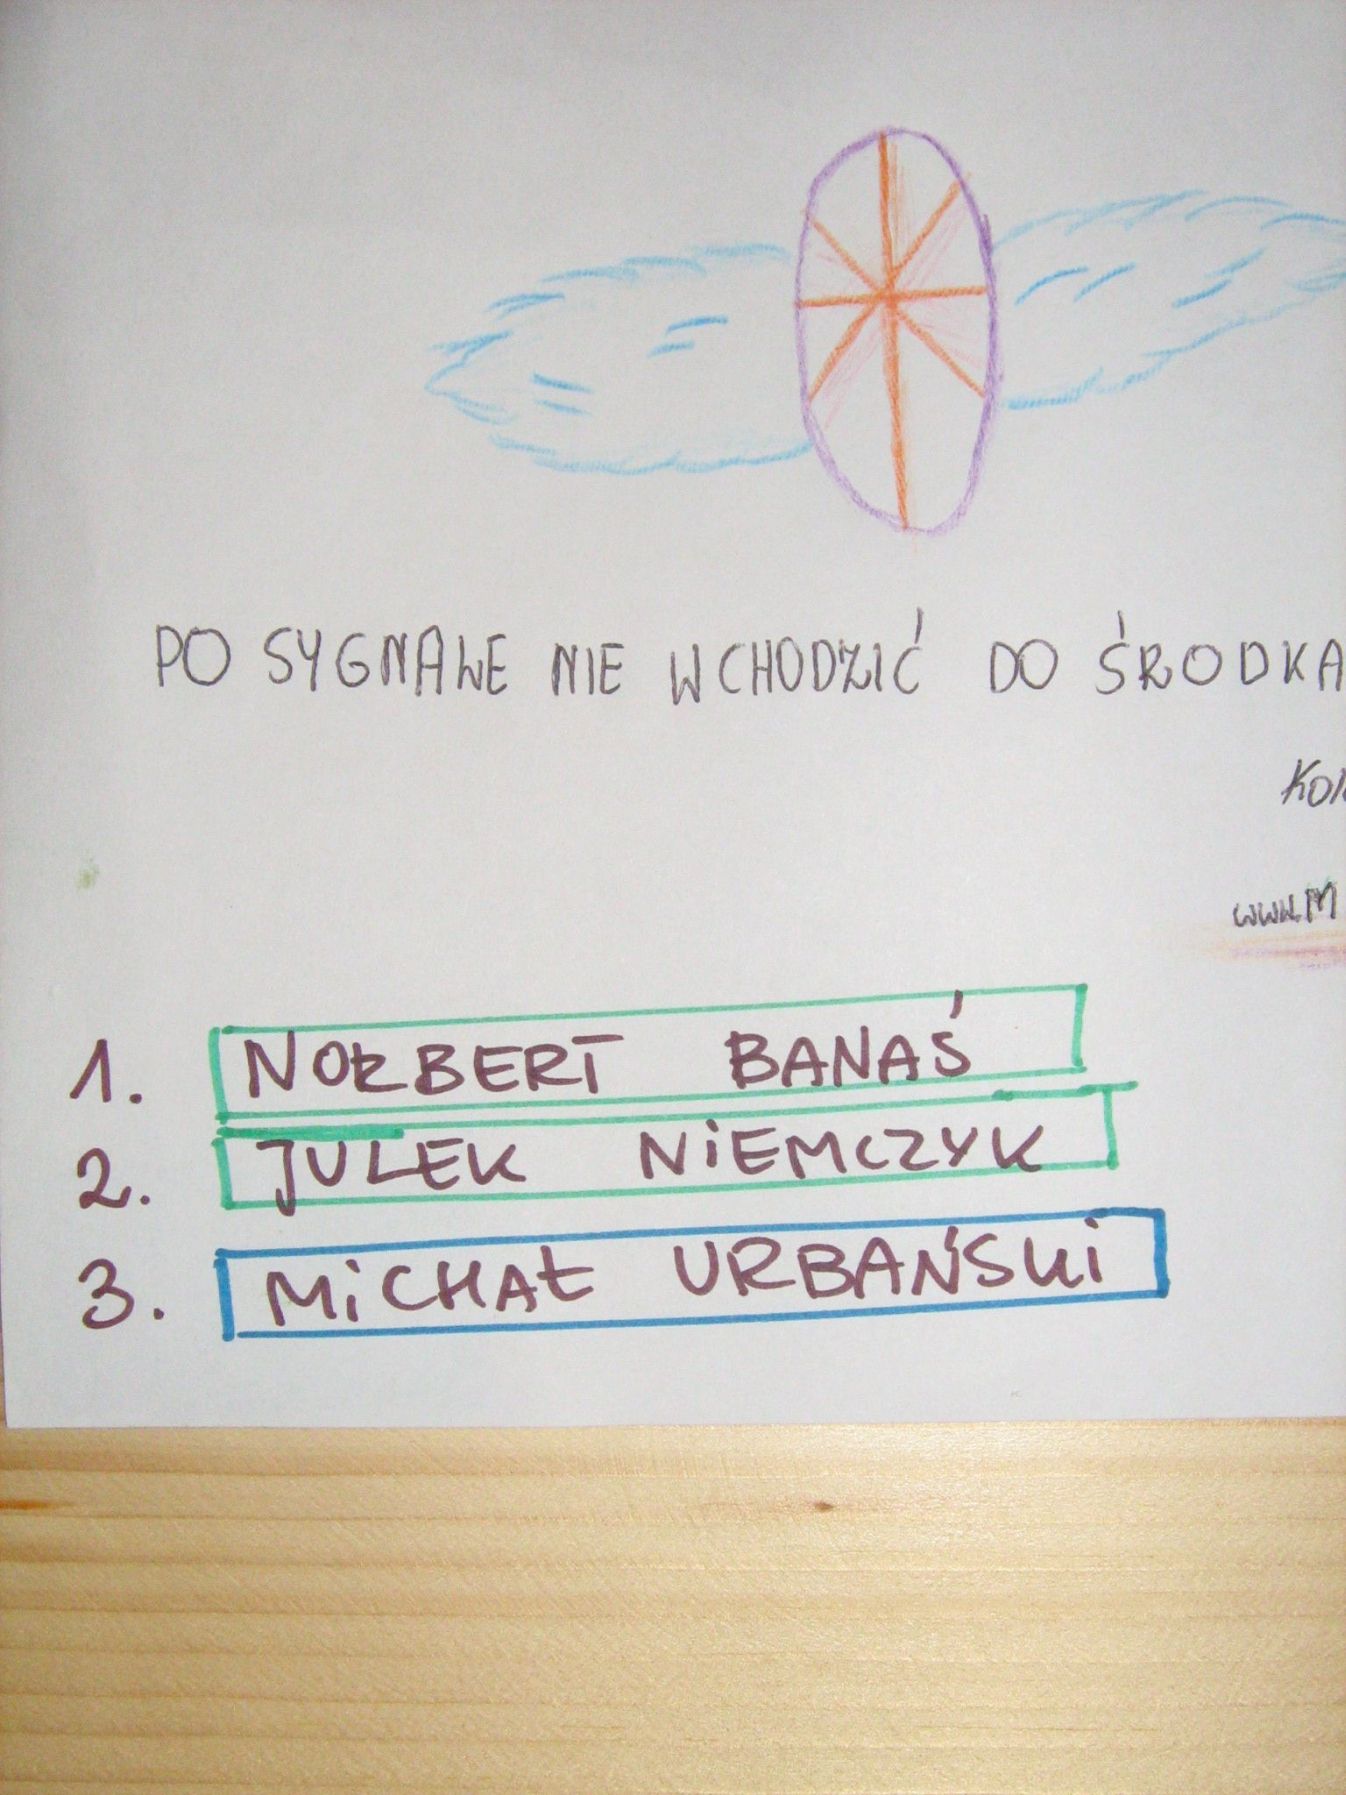 PO SYGNALE NIE WCHODZIĆ DO ŚRODKA
www.M
1. NORBERT BANAŚ
2. JULEK NIEMCZYK
3. MiCHAŁ URBAŃSKi